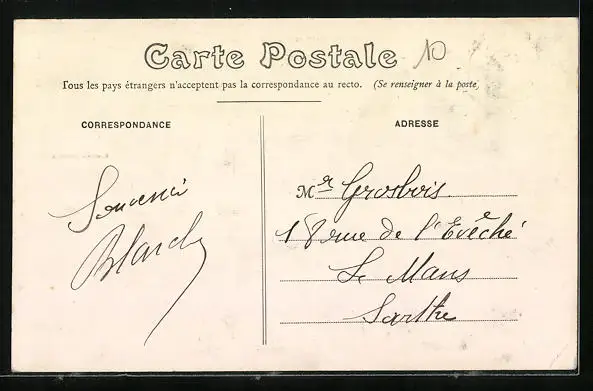 Carte Postale
Tous les pays étrangers n'acceptent pas la correspondance au recto. (Se renseigner à la poste)
CORRESPONDANCE
ADRESSE
Souvenir
Mr Grosbois
18 rue de l'Evêché
Le Mans
Sarthe